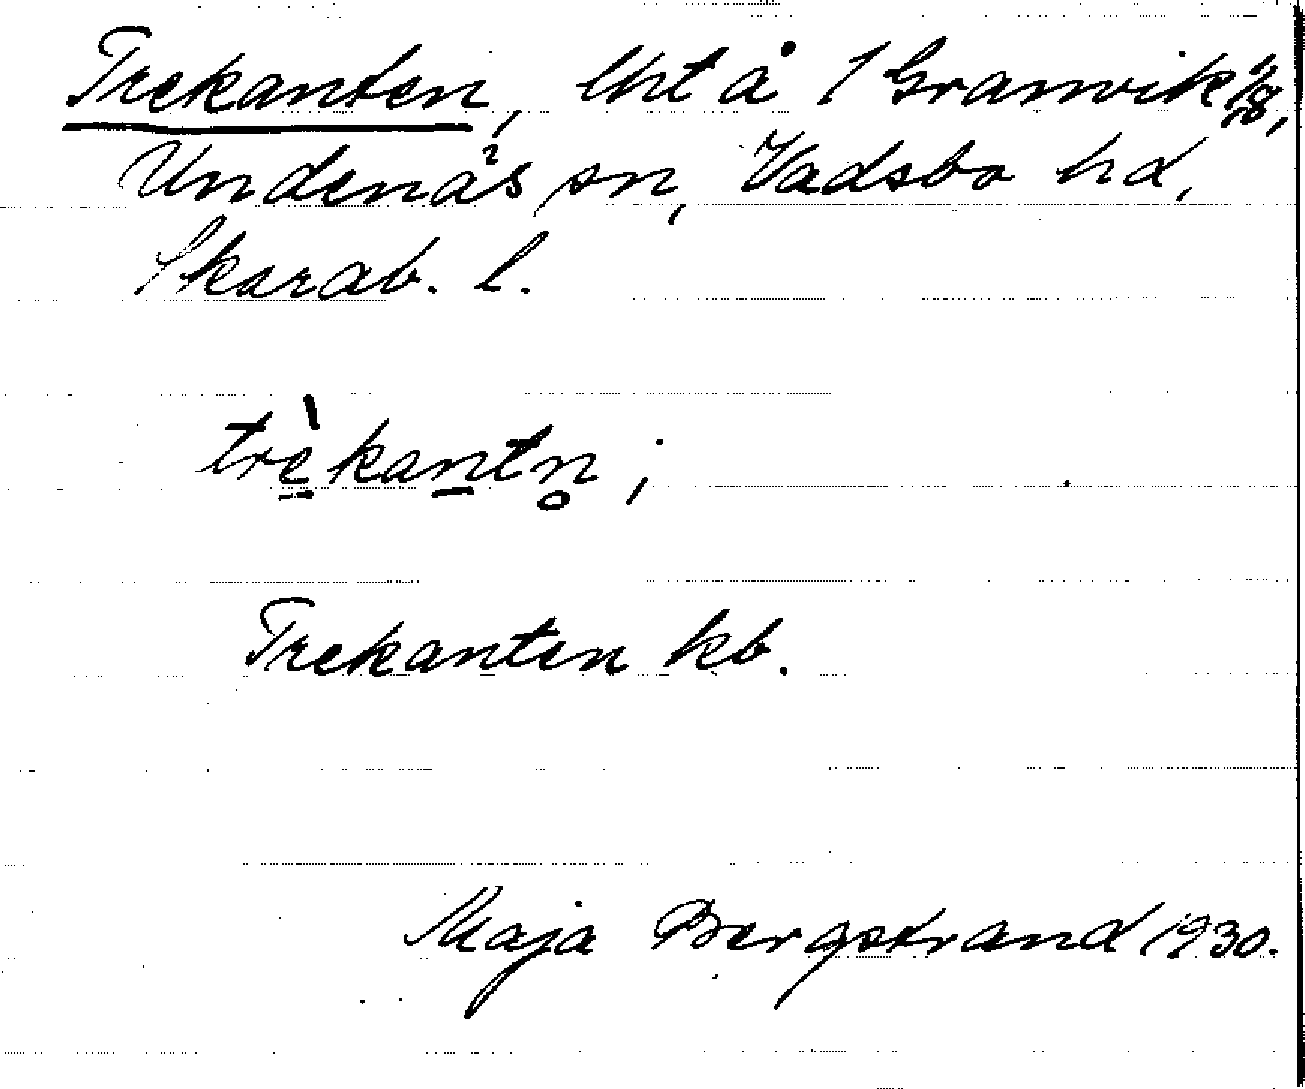 Trekanten, lht å 1 Granvik
Undenäs sn, Vadsbo hd,
Skarab. l.
trèkantn̥;
Trekanten kb.
Maja Bergstrand 1930.